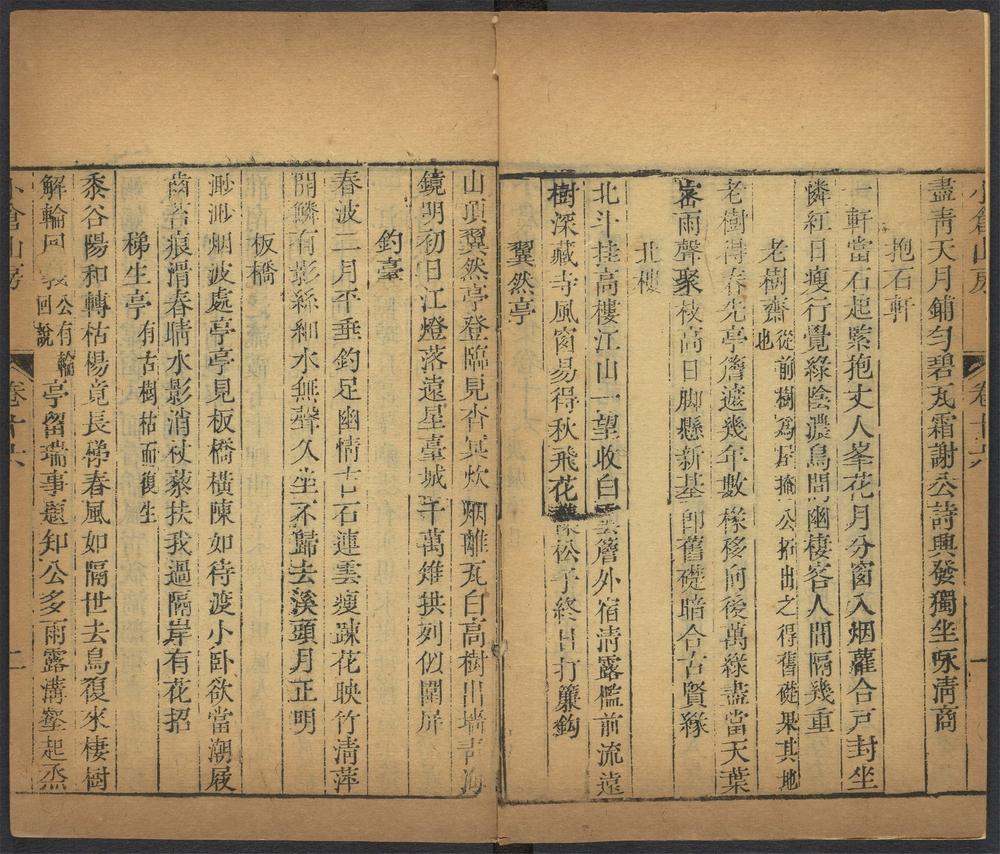 小倉山房
卷十六
一
盡靑天月鋪勻碧瓦霜謝公詩興發獨坐咏淸商
抱石軒
一軒當石起緊抱丈人峯花月分窗入烟蘿合戸封坐
憐紅日瘦行覺綠陰濃鳥問幽棲客人間隔幾重
老樹齋 從前樹爲屋掩公拓出之得舊礎果其地地
老樹得春先亭簷遮幾年數椽移向後萬綠盡當天葉
密雨聲聚枝高日脚懸新基卽舊礎暗合古賢緣
北樓
北斗挂高樓江山一望收白雲簷外宿淸露檻前流遠
樹深藏寺風窗易得秋飛花松子終日打簾鈎
翼然亭
山頂翼然亭登臨見杳冥炊烟離瓦白高樹出墻靑海
鏡明初日江燈落遠星臺城千萬雉拱列似圍屏
釣臺
春波二月平垂釣足幽情古石連雲瘦踈花映竹淸萍
開鱗有影絲細水無聲久坐不歸去溪頭月正明
板橋
渺渺烟波處亭亭見板橋橫陳如待渡小卧欲當潮屐
齒苔痕滑春晴水影消杖藜扶我過隔岸有花招
梯生亭 有古樹枯而復生
黍谷陽和轉枯楊竟長稊春風如隔世去鳥復來棲樹
解輪回 公有輪回說 亭留瑞事題知公多雨露溝壑起烝
小倉山房
卷十六
二